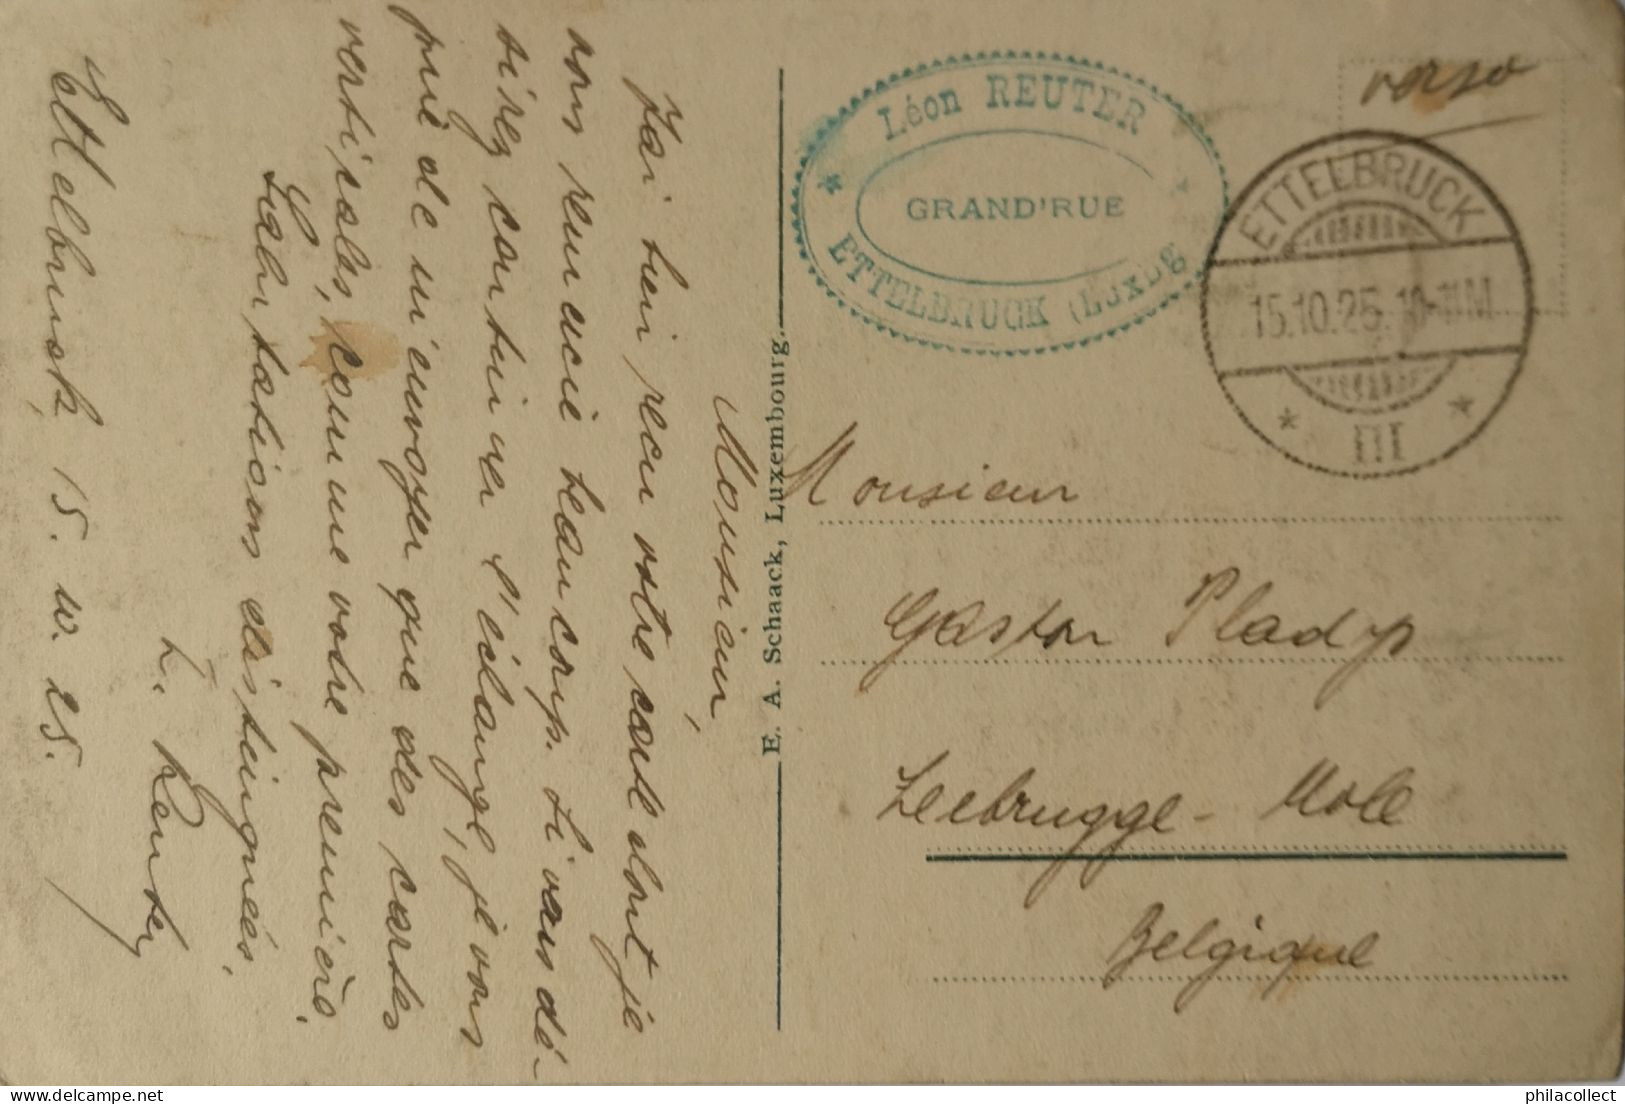 Monsieur,
J'ai bien reçu votre carte dont je
vous remercie beaucoup. Si vous dé-
sirez continuer l'échange, je vous
prie de m'envoyer que des cartes
verticales, comme votre première.
Salutations distinguées,
L. Reuter
Ettelbruck, 15. 10. 25.
E. A. Schaack, Luxembourg.
Léon REUTER
GRAND'RUE
ETTELBRUCK (Luxbg
verso
ETTELBRUCK
15.10.25. 10-11M
* III *
Monsieur
Gaston Pladys
Zeebrugge - Mole
Belgique
philacollect for delcampe.net
philacollect